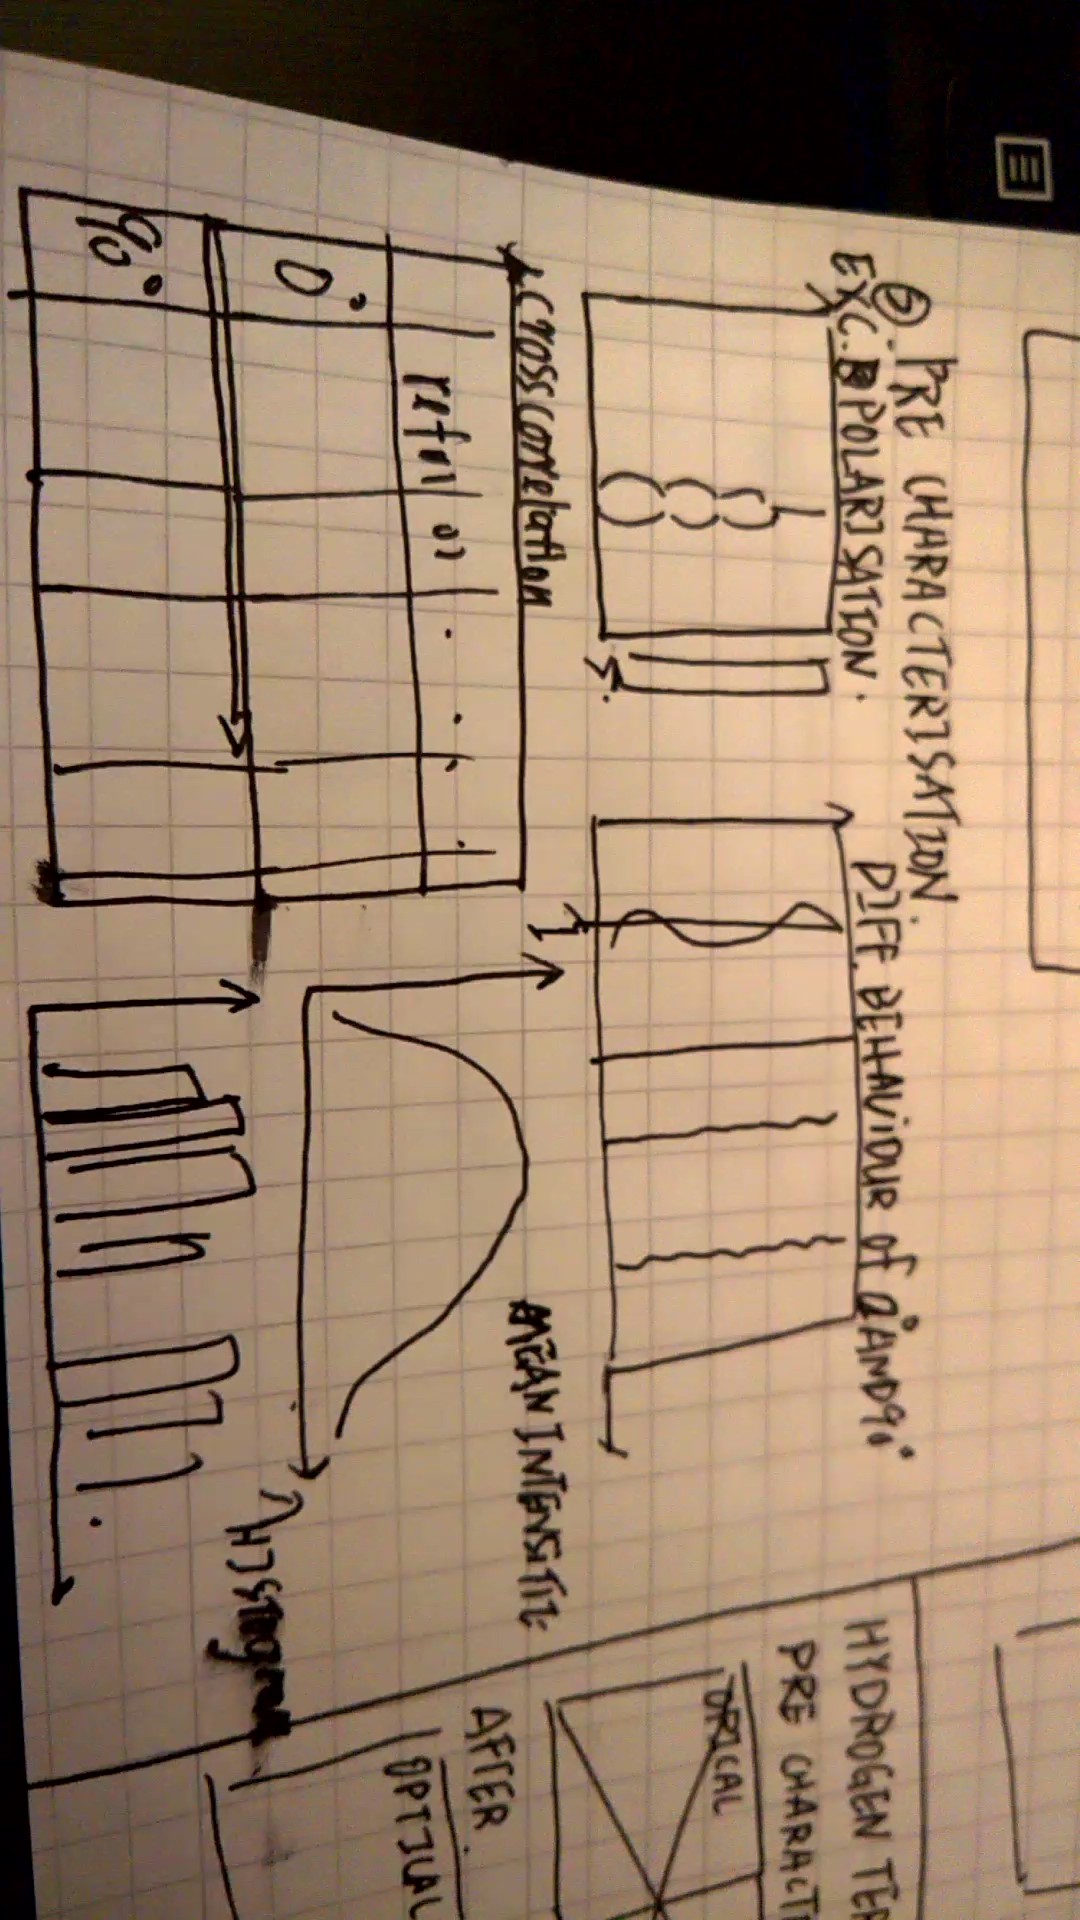 ⑤. PRE CHARACTERISATION
EXC. POLARISATION.
DIFF. BEHAVIOUR of 0° AND 90°
Crosscorrelation
0°
90°
MEAN INTENSITIE
HISTogram
HYDROGEN
PRE CHARACT
AFTER
OPTICAL